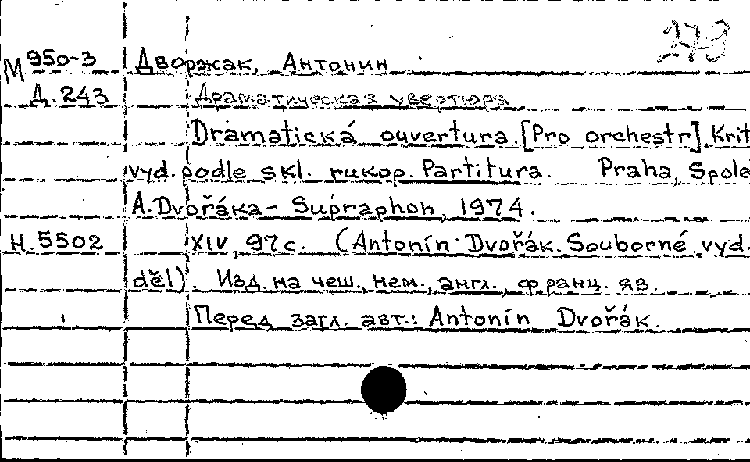 273
М 950-3 Дворжак, Антонин
Д.243 Драматическая увертюра
Dramatická ouvertura. [Pro orchestr]. Krit
vyd. podle skl. rukop. Partitura. Praha, Spole
A. Dvořáka - Supraphon, 1974.
Н.5502 XIV, 97 с. (Antonín Dvořák. Souborné vyd.
děl). Изд. на чеш., нем., англ., франц. яз.
Перед загл. авт.: Antonín Dvořák.